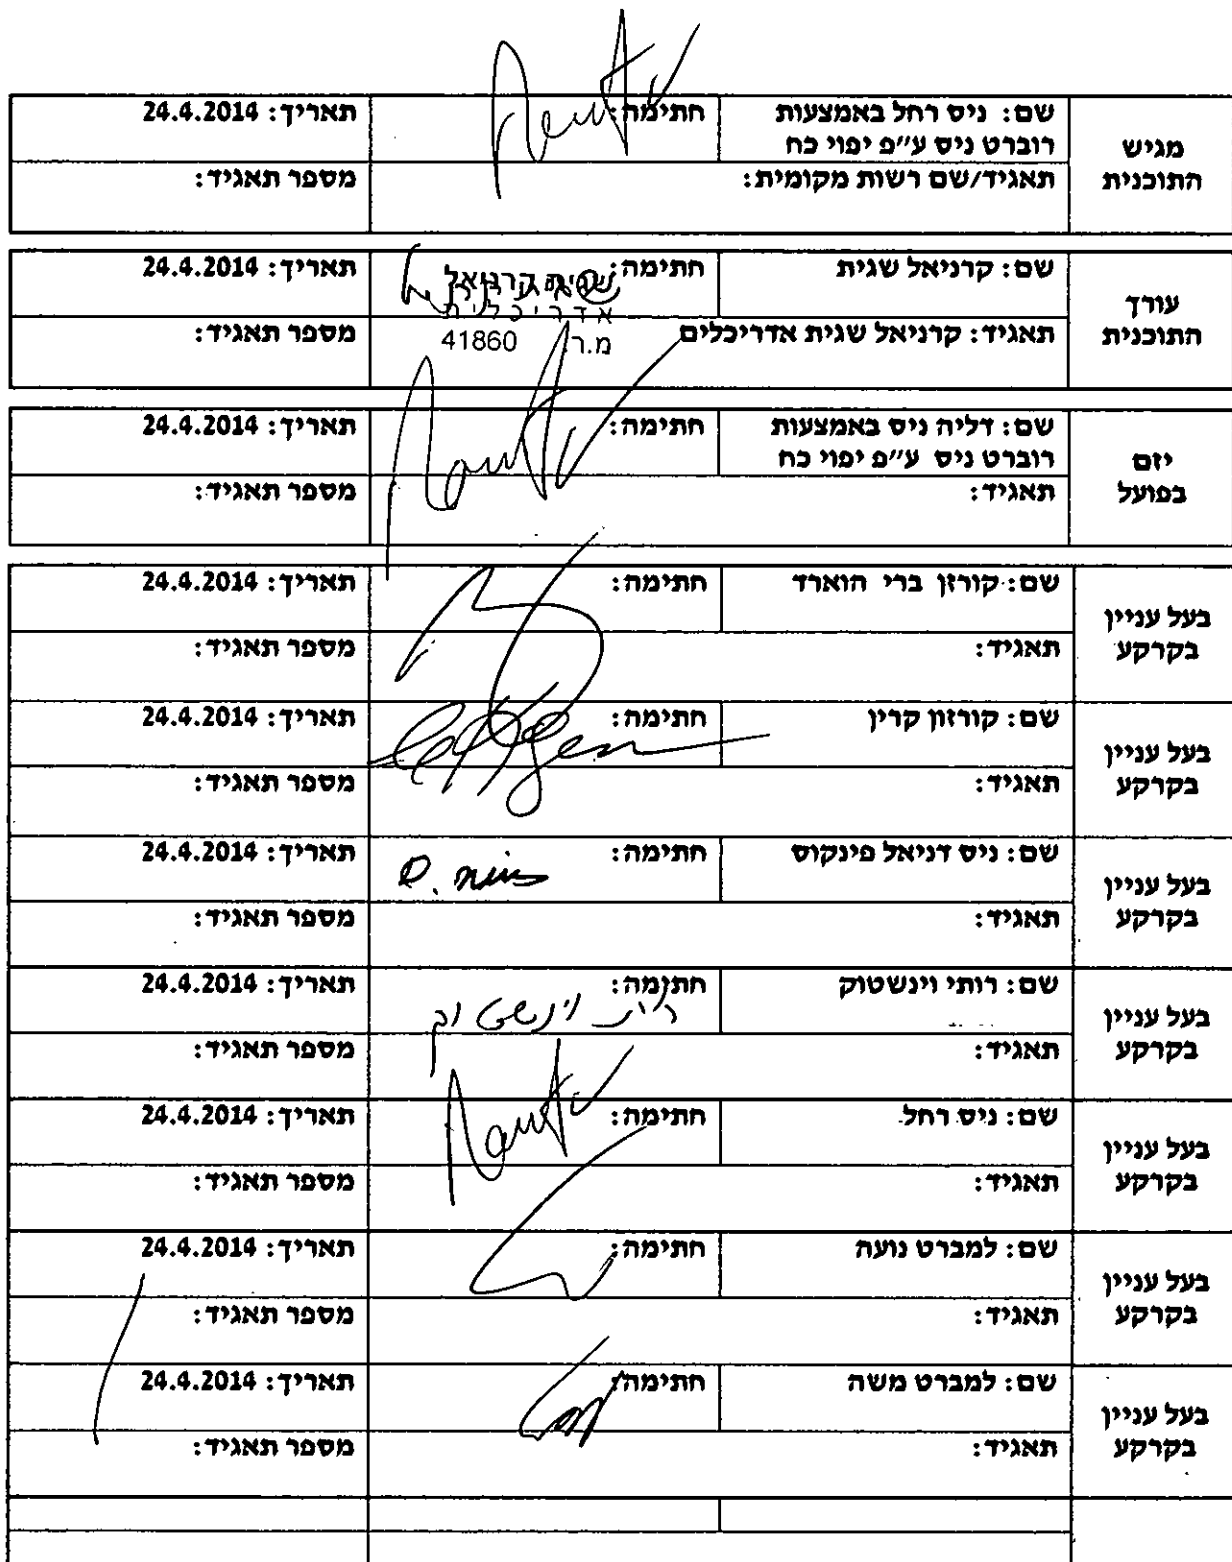 מגיש
התוכנית
שם: ניס רחל באמצעות
רוברט ניס ע״פ יפוי כח
חתימה:
תאריך: 24.4.2014
תאגיד/שם רשות מקומית:
מספר תאגיד:
עורך
התוכנית
שם: קרניאל שגית
חתימה:
שגית קרניאל
אדריכלית
מ.ר. 41860
תאריך: 24.4.2014
תאגיד: קרניאל שגית אדריכלים
מספר תאגיד:
יזם
בפועל
שם: דליה ניס באמצעות
רוברט ניס ע״פ יפוי כח
חתימה:
תאריך: 24.4.2014
תאגיד:
מספר תאגיד:
בעל עניין
בקרקע
שם: קורזן ברי הוארד
חתימה:
תאריך: 24.4.2014
תאגיד:
מספר תאגיד:
בעל עניין
בקרקע
שם: קורזון קרין
חתימה:
תאריך: 24.4.2014
תאגיד:
מספר תאגיד:
בעל עניין
בקרקע
שם: ניס דניאל פינקוס
חתימה:
D. Niis
תאריך: 24.4.2014
תאגיד:
מספר תאגיד:
בעל עניין
בקרקע
שם: רותי וינשטוק
חתימה:
וינשטוק
תאריך: 24.4.2014
תאגיד:
מספר תאגיד:
בעל עניין
בקרקע
שם: ניס רחל
חתימה:
תאריך: 24.4.2014
תאגיד:
מספר תאגיד:
בעל עניין
בקרקע
שם: למברט נועה
חתימה:
תאריך: 24.4.2014
תאגיד:
מספר תאגיד:
בעל עניין
בקרקע
שם: למברט משה
חתימה:
תאריך: 24.4.2014
תאגיד:
מספר תאגיד: